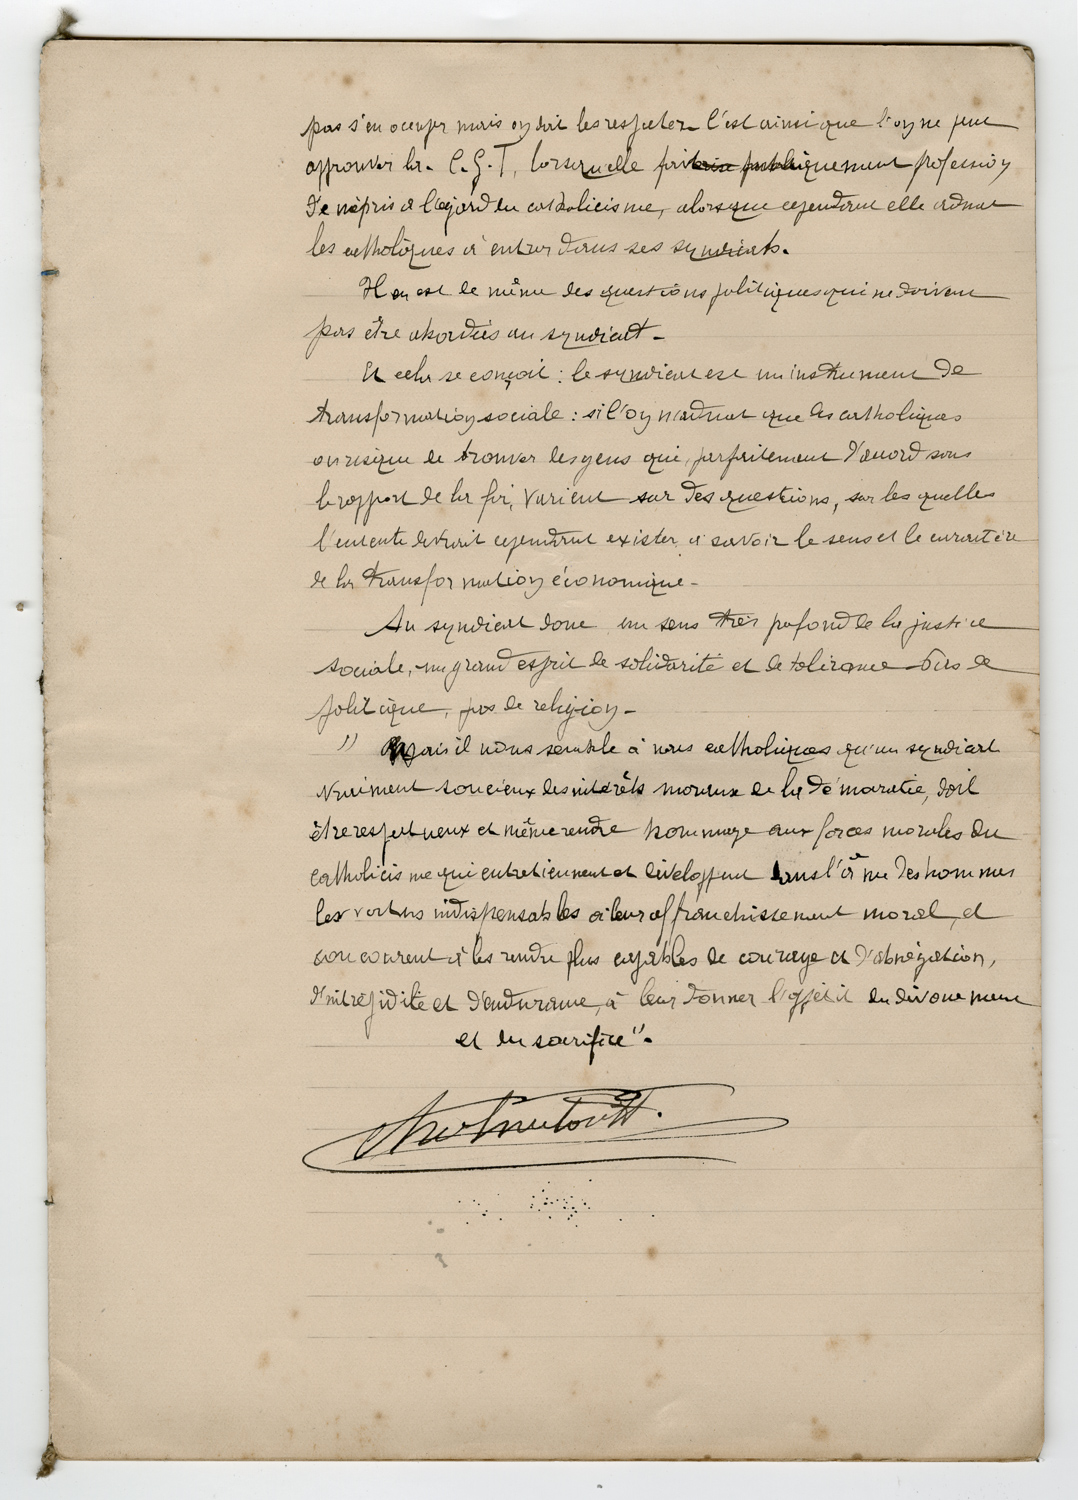 pas s'en occuper mais on doit les respecter. C'est ainsi que l'on ne peut
approuver la C.G.T, lorsqu'elle fait publiquement profession
de mépris à l'égard du catholicisme, alors que cependant elle admet
les catholiques à entrer dans ses syndicats.
Il en est de même des questions politiques qui ne doivent
pas être abordées au syndicat -
Et cela se conçoit : le syndicat est un instrument de
transformation sociale : si l'on n'admet que les catholiques
on risque de trouver des gens qui, parfaitement d'accord sous
le rapport de la foi, varient sur des questions, sur les quelles
l'entente devrait cependant exister, à savoir le sens et le caractère
de la transformation économique -
Au syndicat donc un sens très profond de la justice
sociale, un grand esprit de solidarité et de tolérance - Pas de
politique, pas de religion -
" Mais il nous semble à nous catholiques qu'un syndicat
vraiment soucieux des intérêts moraux de la démocratie, doit
être respectueux et même rendre hommage aux forces morales du
catholicisme qui entretiennent et développent dans l'âme des hommes
les vertus indispensables à leur affranchissement moral, et
concourent à les rendre plus capables de courage et d'abnégation,
d'intrépidité et d'endurance, à leur donner l'appétit du dévouement
et du sacrifice".